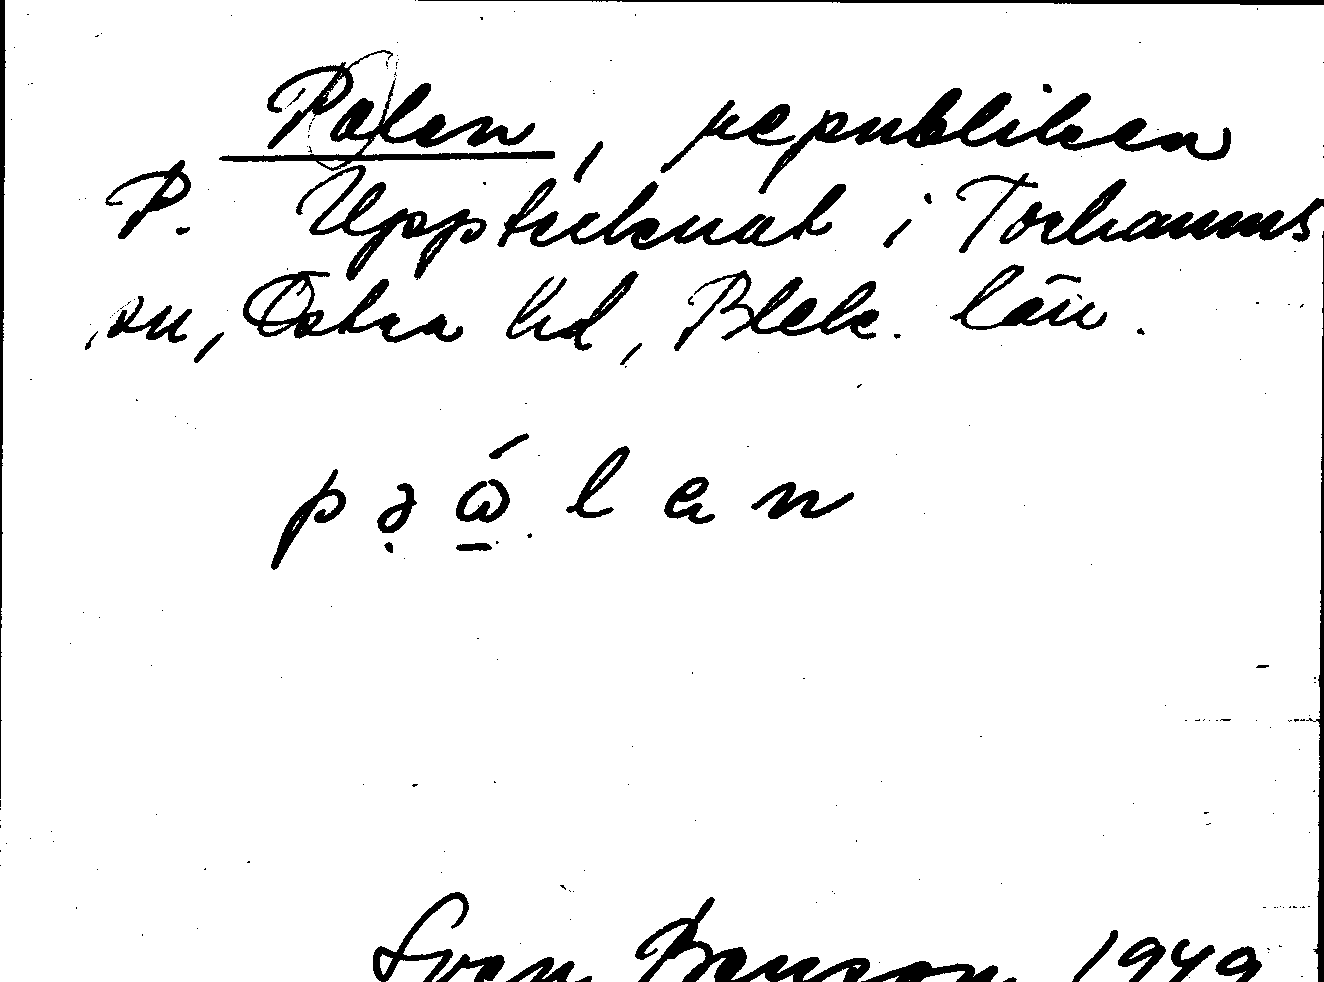 Polen, republiken
P. Upptecknat i Torhamns
sn, Östra hd, Blek. län.
p ə̣ ɷ̲́ l e n
Sven Benson 1949